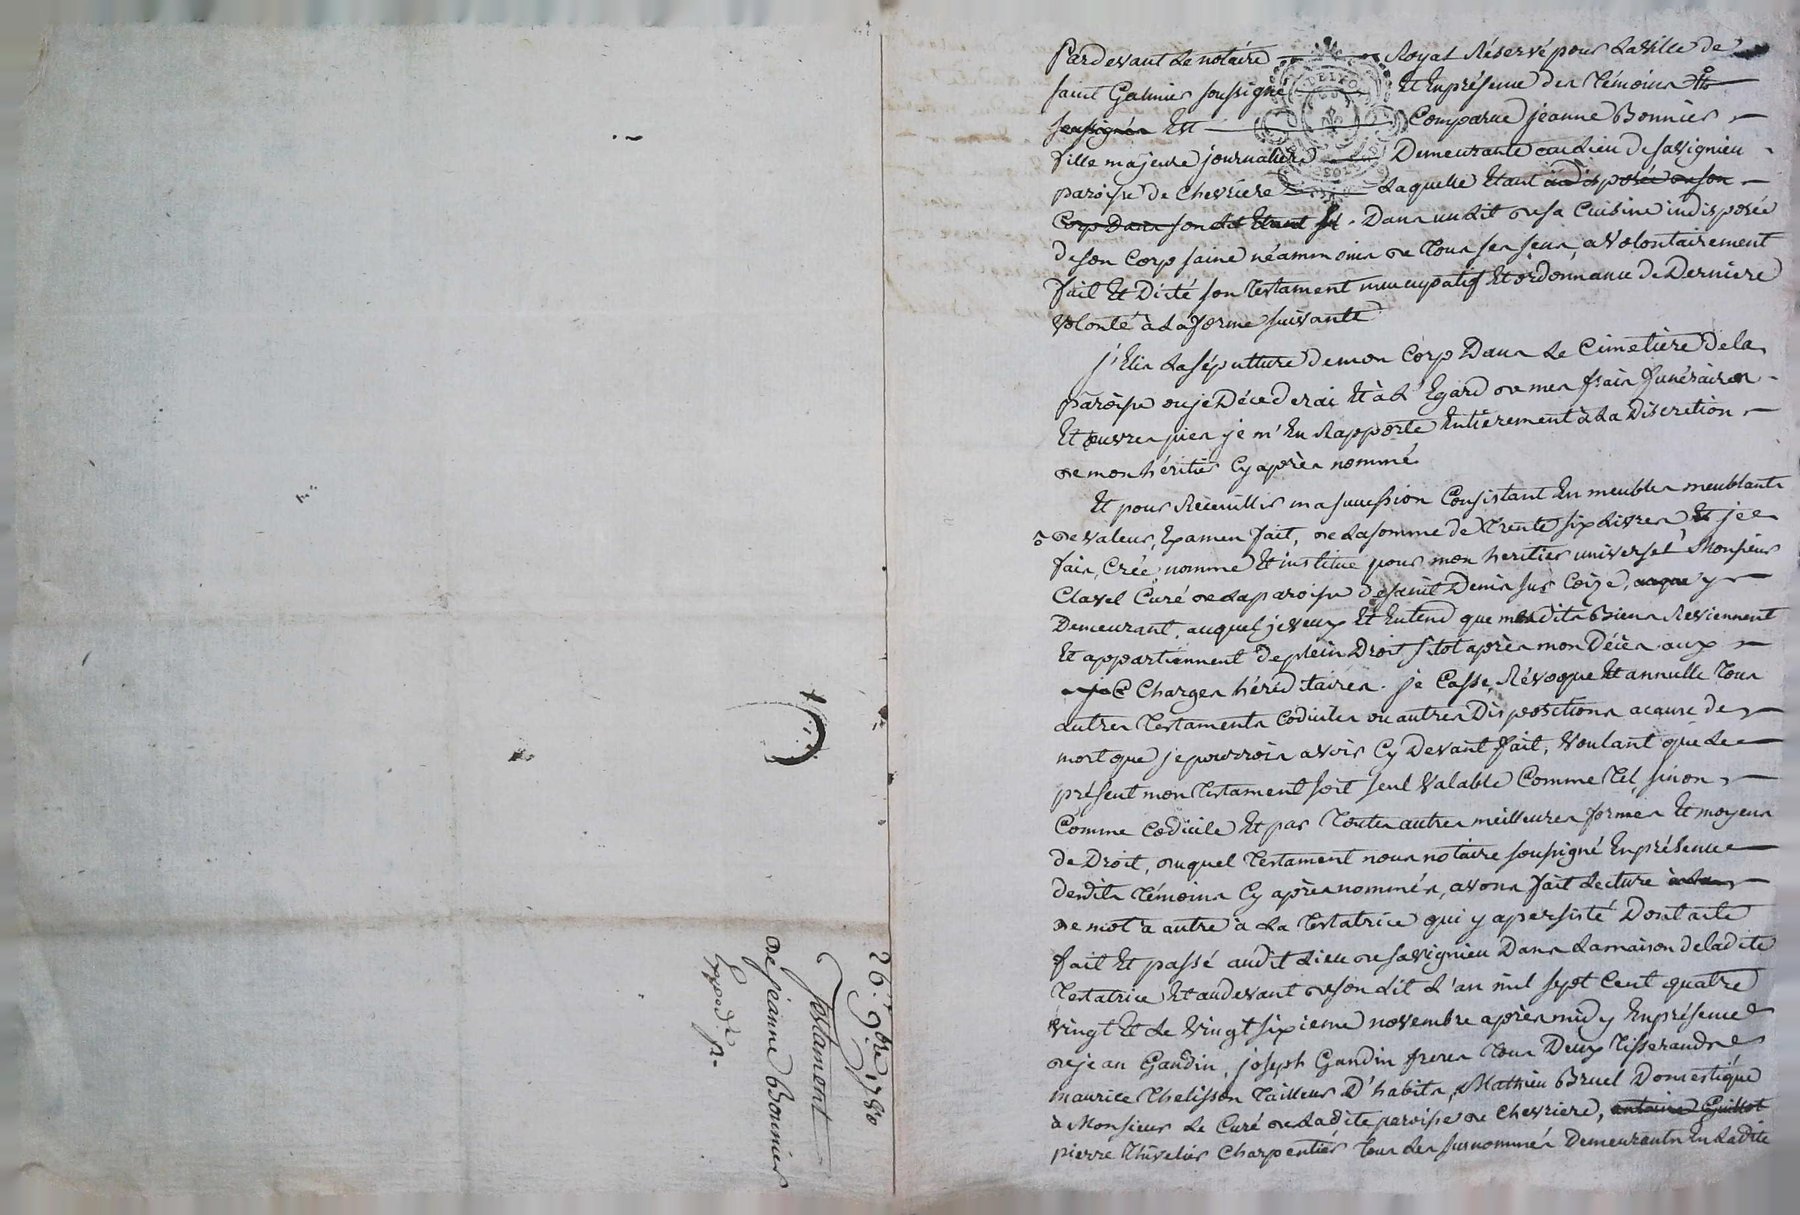 26.e 9bre 1780
Testament
de jeanne Bonnier
Expéd.é
Pardevant Le notaire Royal Réservé pour La ville de
saint Galmier soussigné Et En présence des Témoins
soussignés Est Comparue jeanne Bonnier
fille majeure journaliere Demeurante au Lieu de savignieu
paroisse de Chevriere Laquelle Etant indisposée de son
Corp Dans son Lit Etant Dans un Lit de sa Cuisine indisposée
de son Corp saine néammoins de Tous ses sens, a Volontairement
fait Et Dicté son Testament nuncupatif Et ordonnance de Derniere
Volonté à La forme suivante
j'Elis La sépulture de mon Corp Dans Le Cimetière de la
paroisse ou je Décederai Et à L'Egard de mes frais funéraires
Et œuvres pies je m'En Rapporte Entierement à La Discretion
de mon héritier Cy après nommé
Et pour Récuillir ma succession Consistant En meubles meublants
de valeur, Examen fait, de La somme de Trente six Livres Et je
fais, Créé, nomme Et institue pour mon heritier universel Monsieur
Clavel Curé de La paroisse de saint Denis sur Coize, y
Demeurant, auquel je veux Et Entend que mesdits Biens Reviennent
Et appartiennent de plein Droit sitot après mon Décès aux
Charges héréditaires. je Casse, Révoque Et annulle Tous
autres Testaments Codiciles ou autres Dispositions acause de
mort que je pourrois avoir Cy Devant fait, Voulant que Le
présent mon Testament soit seul Valable Comme Tel, sinon
Comme Codicile Et par Toutes autres meilleures formes Et moyens
de Droit, duquel Testament nous notaire soussigné En présence
desdits Témoins Cy après nommés, avons fait Lecture
de mot à autre à La Testatrice qui y a persisté Dont acte
fait Et passé audit Lieu de savignieu Dans La maison de ladite
Testatrice Et audevant de son Lit L'an mil sept Cent quatre
vingt Et Le Vingt sixieme novembre après midy En présence
de jean Gandin, joseph Gandin freres Tous Deux Tisserands
maurice Thelisson Tailleur D'habits, Mathieu Bruel Domestique
à Monsieur Le Curé de Ladite paroisse de Chevriere, antoine Guillot
pierre Thivelier Charpentier Tous Les surnommés Demeurants En Ladite